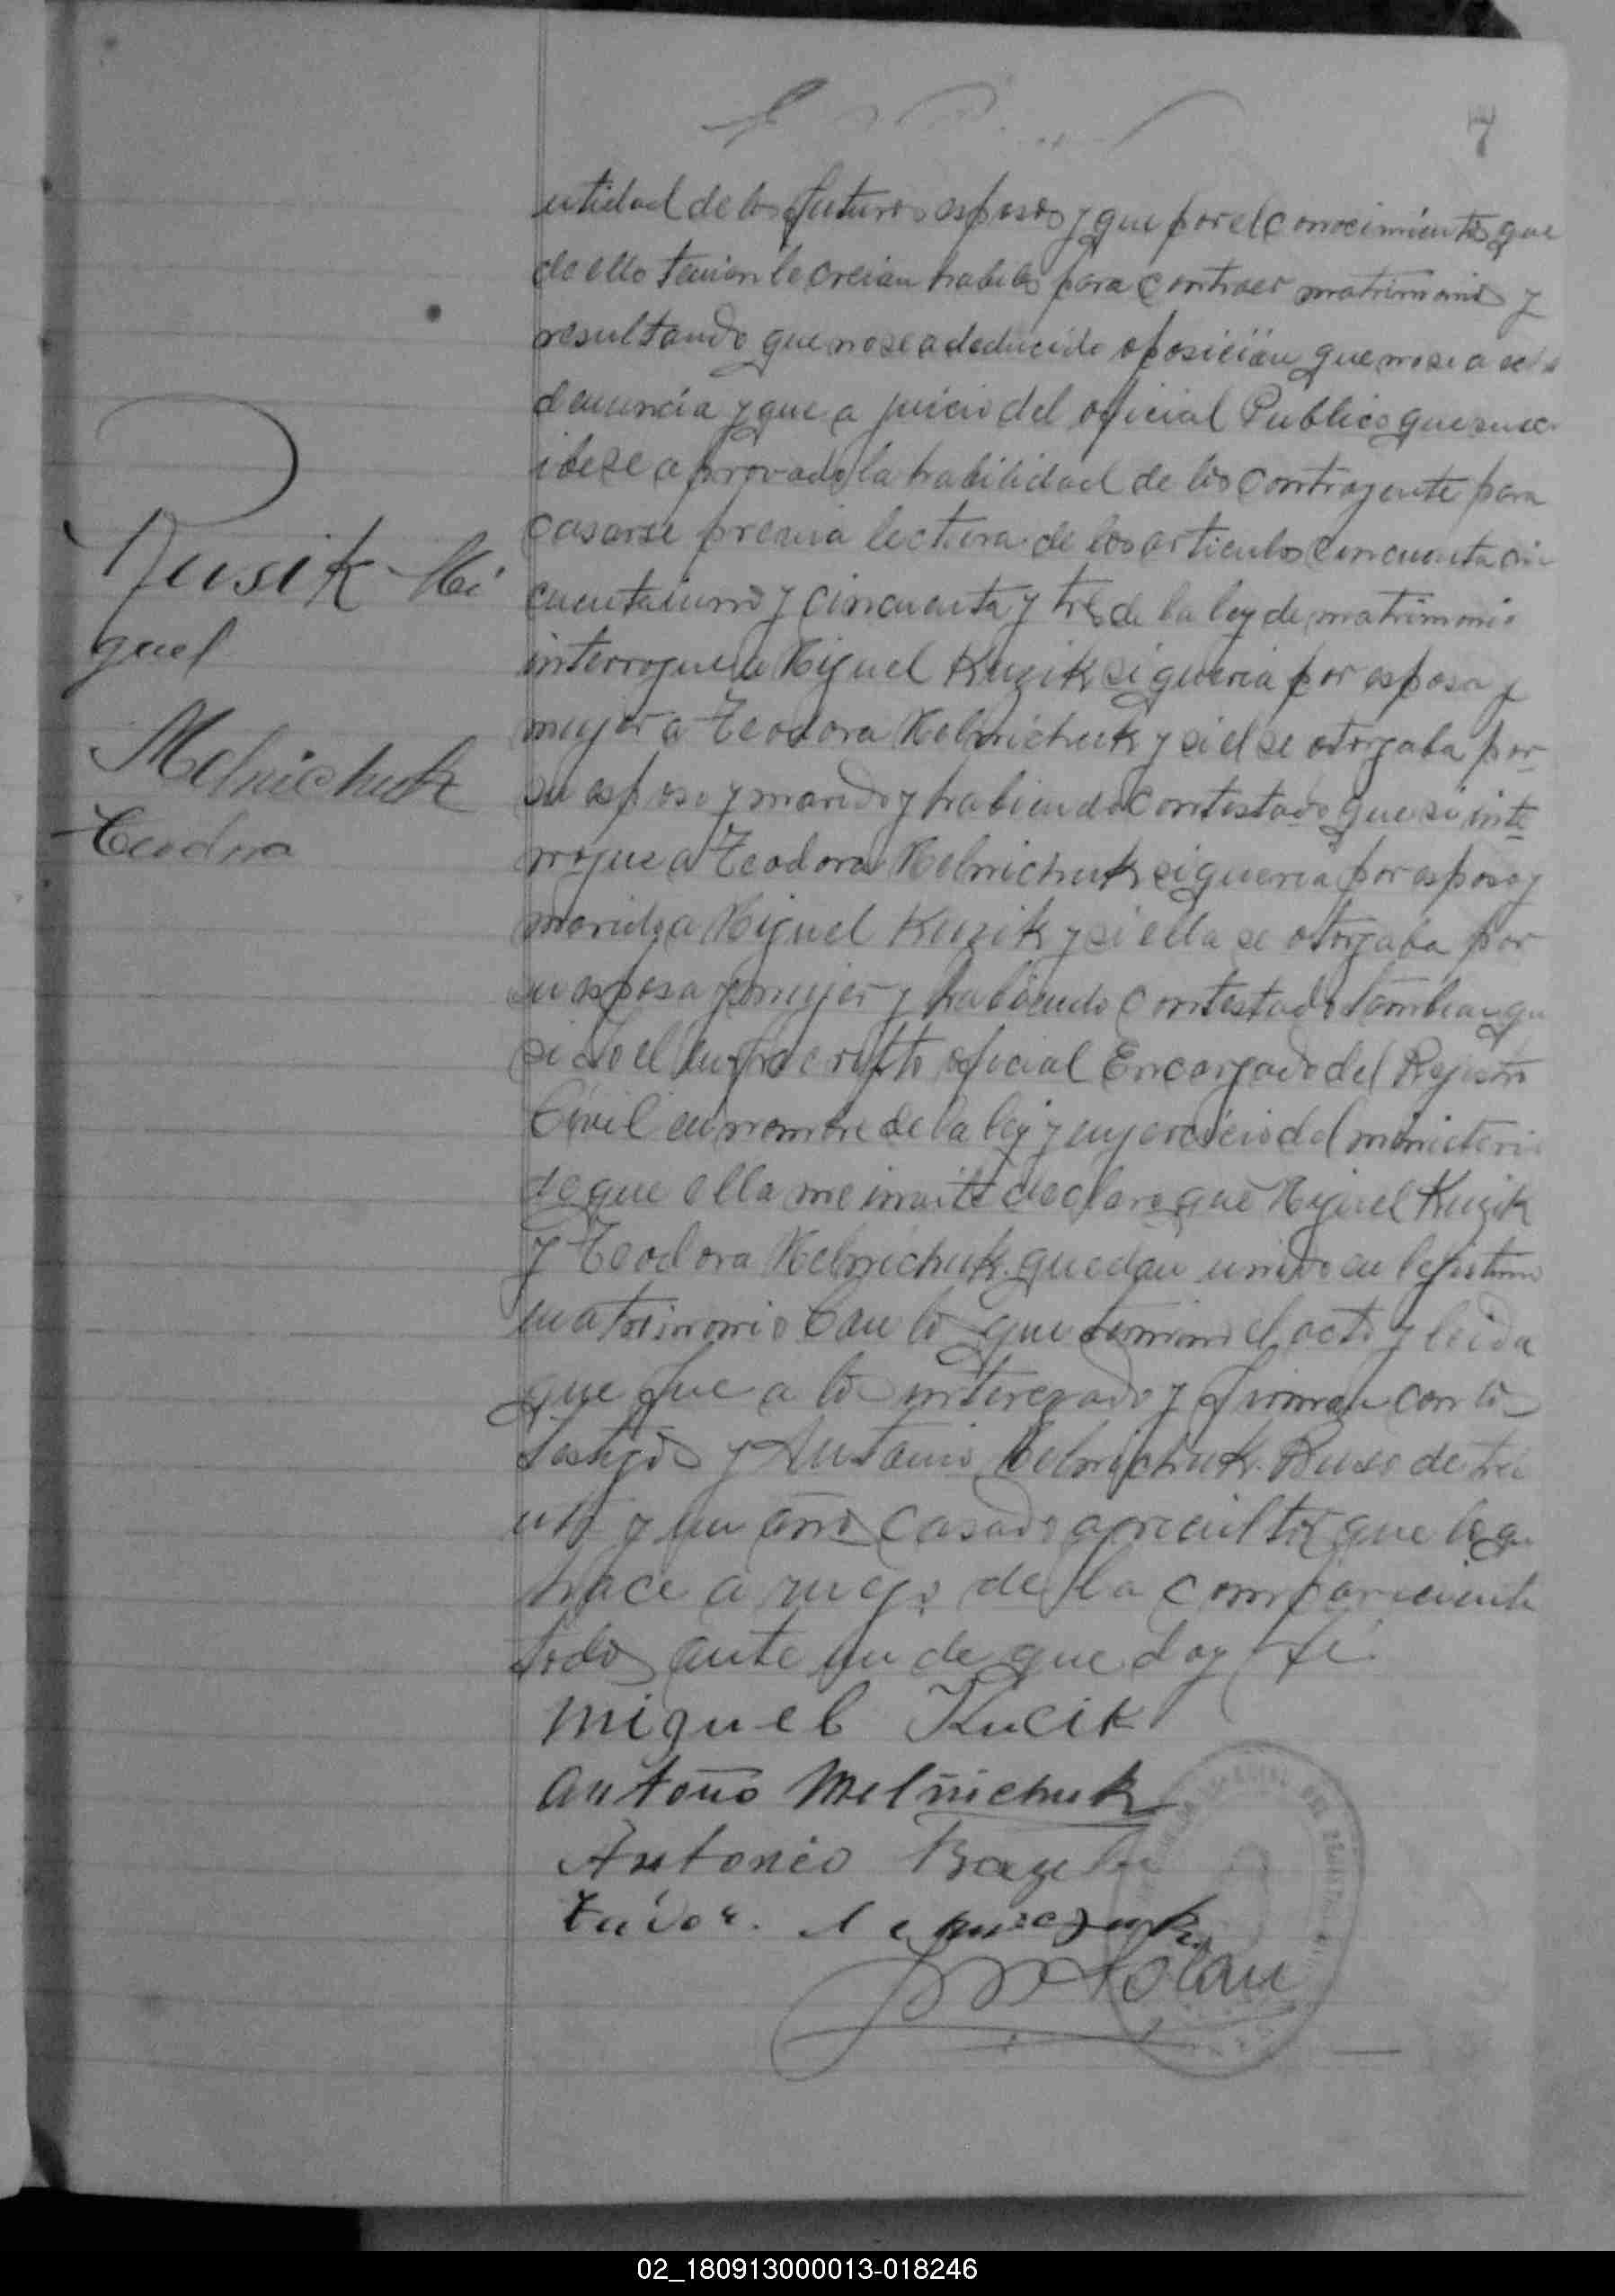 7
entidad de los futuros esposos y que por el conocimiento que
de ello tenian le creian habiles para contraer matrimonio y
resultando que no se a deducido oposicion que no se a
denuncia y que a juicio del oficial Publico que susc
ibe se a provado la habilidad de los contrayente para
casarse previa lectura de los articulos cincuenta cin
cuentaiuno y cincuenta y tres de la ley de matrimonio
interrogue a Miguel Kuzik si queria por esposa y
mujer a Teodora Melnichuk y si el se otorgaba por
su esposo y marido y habiendo contestado que si inte
rrogue a Teodora Melnichuk si queria por esposo y
marido a Miguel Kuzik y si ella se otorgaba por
su esposa y mujer y habiendo contestado tambien qu
si Yo el infrascripto oficial Encargado del Rejistro
Civil en nombre de la ley y en jercicio del ministerio
de que ella me inviste declaro que Miguel Kuzik
y Teodora Melnichuk quedan unidos en lejitimo
matrimonio Con lo que termino el acto y leida
que fue a los interezado y firman con los
testigos y Antonio Melnichuk Ruso de trei
nta y un año casado agricultor que lo
hace a ruego de la compareciente
todos ante mi de que doy fé.
Kusik Mi
guel
Melnichuk
Teodora
Miguel Kucik
Antoño Melnichuk
Antonio
02_180913000013-018246